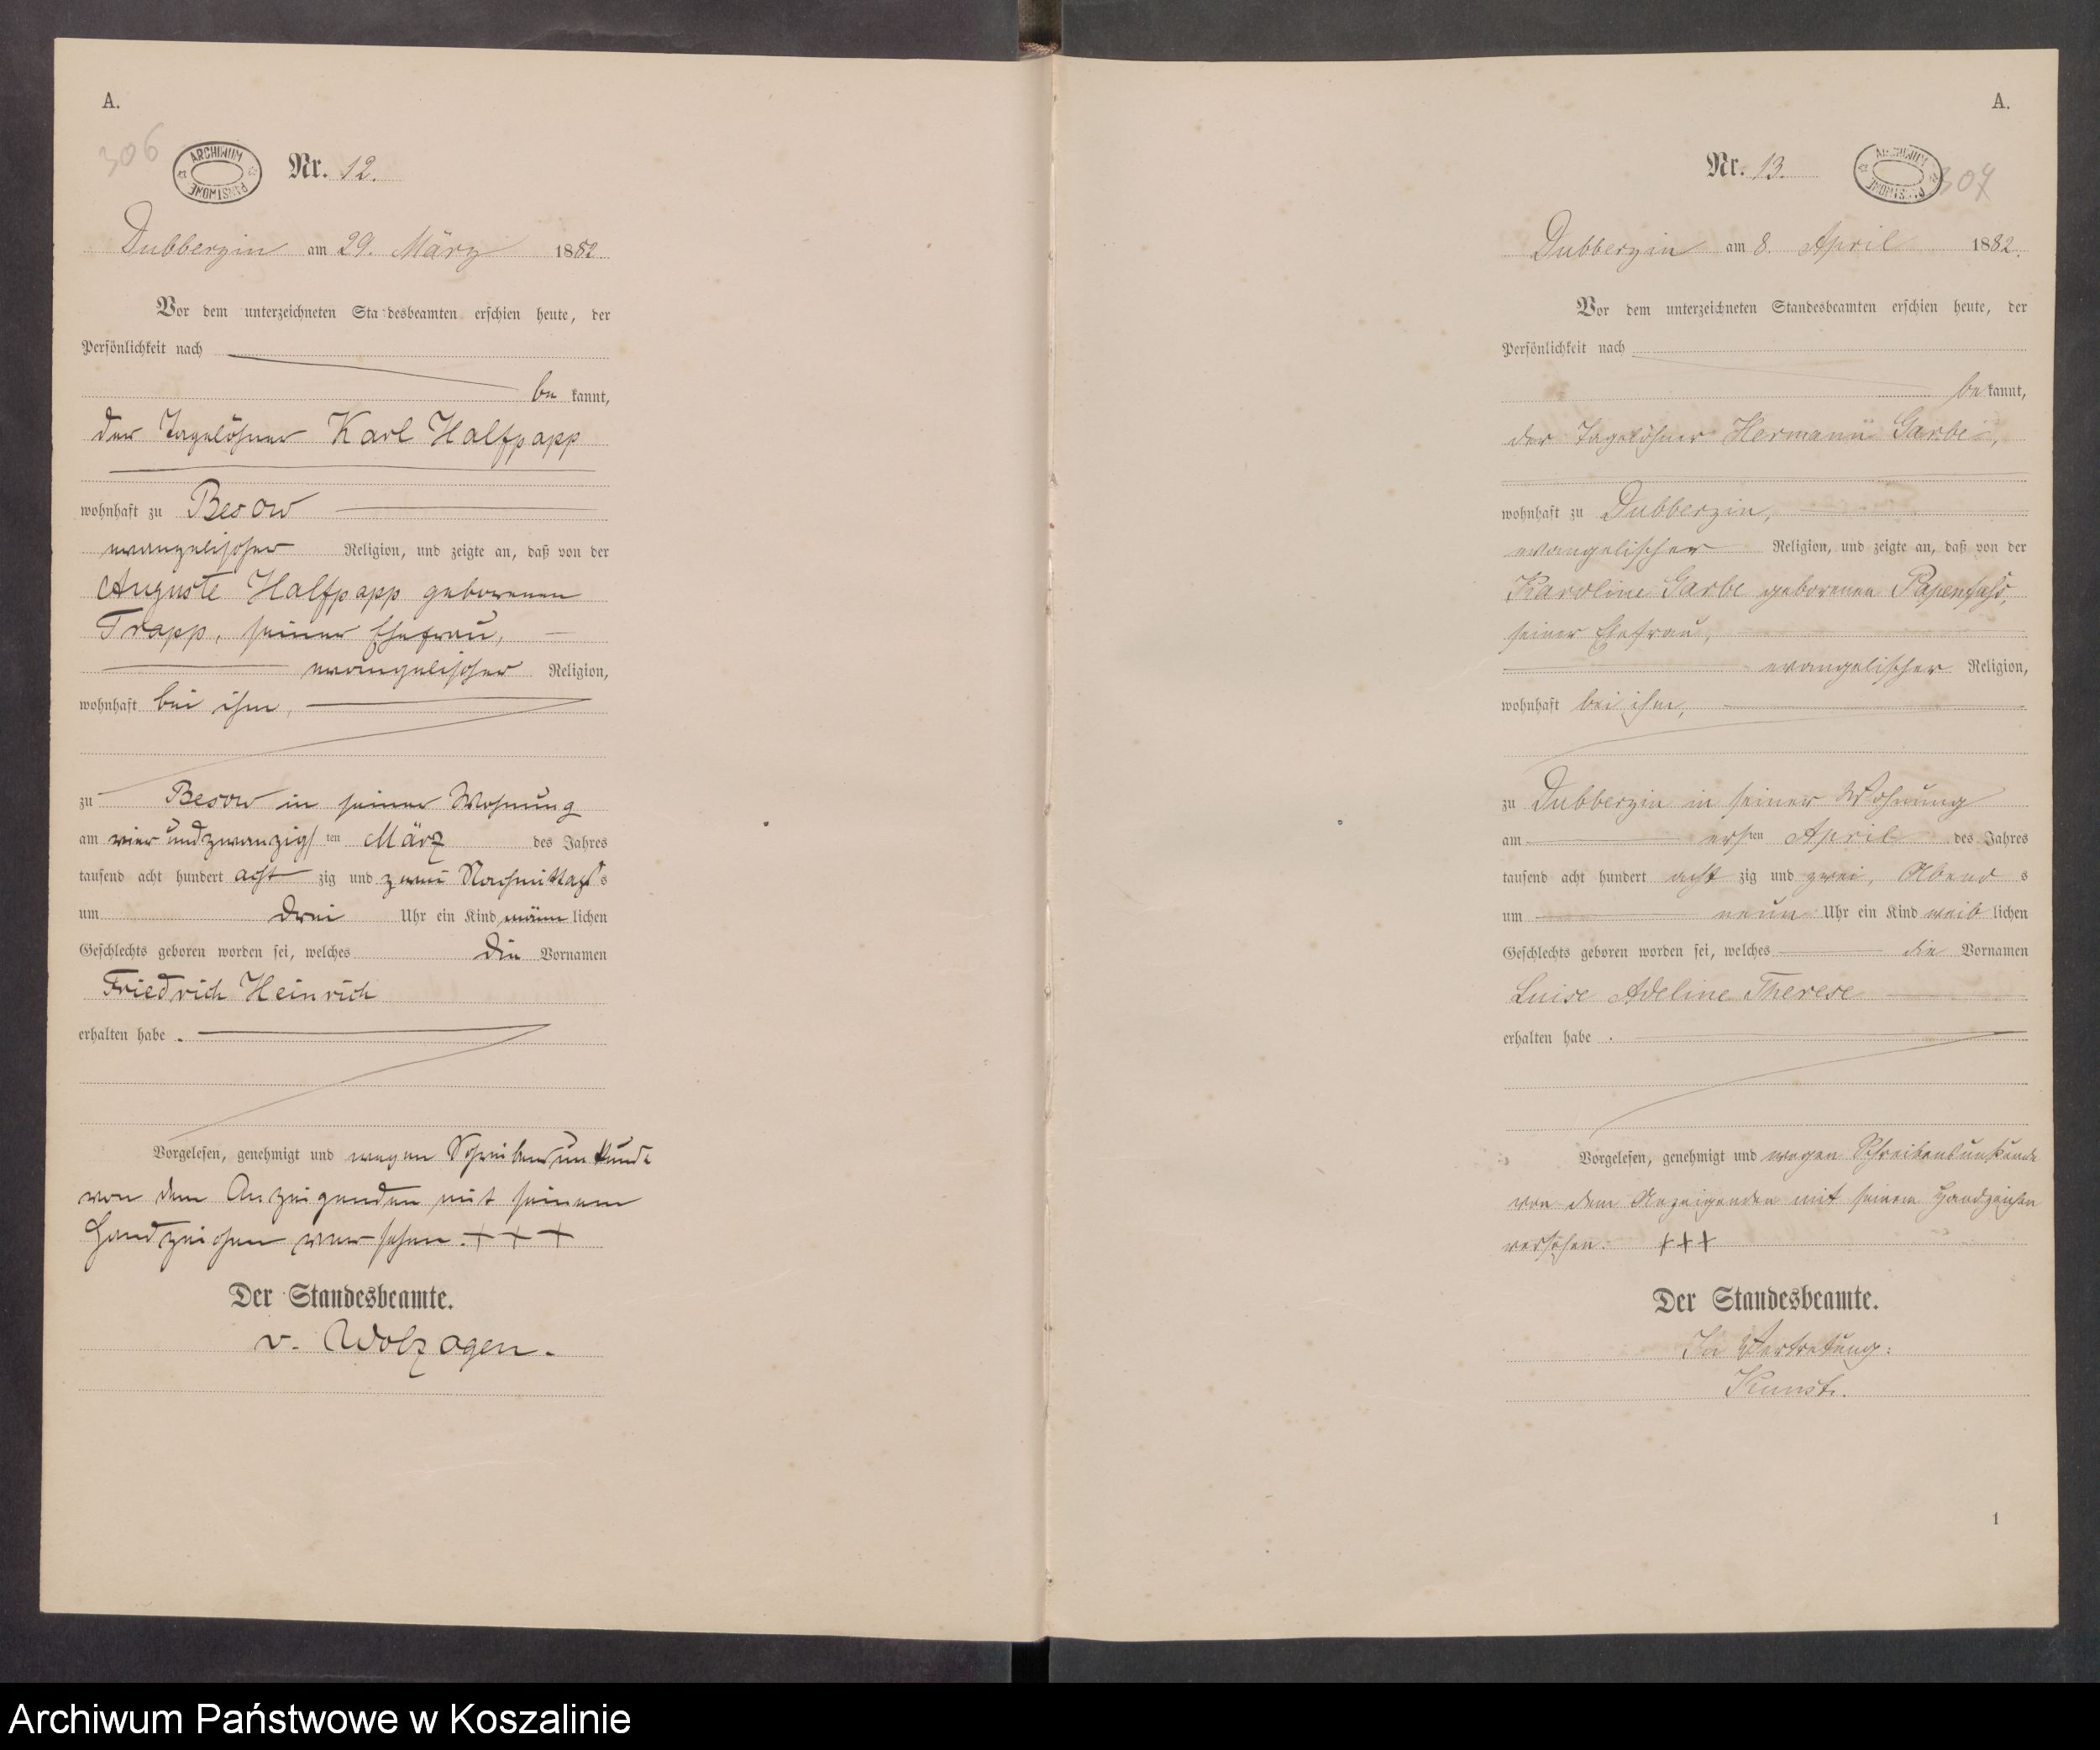 A.
306
ARCHIWUM PAŃSTWOWE
Nr. 12.
Dubberzin am 29. März 1882
Vor dem unterzeichneten Standesbeamten erschien heute, der
Persönlichkeit nach
be kannt,
der Tagelöhner Karl Halfpapp
wohnhaft zu Besow
evangelischer Religion, und zeigte an, daß von der
Auguste Halfpapp geborenen
Trapp, seiner Ehefrau,
evangelischer Religion,
wohnhaft bei ihm,
zu Besow in seiner Wohnung
am vier und zwanzigsten März des Jahres
tausend acht hundert acht zig und zwei Nachmittags
um drei Uhr ein Kind männlichen
Geschlechts geboren worden sei, welches die Vornamen
Friedrich Heinrich
erhalten habe.
Vorgelesen, genehmigt und wegen Schreibensunkunde
von dem Anzeigenden mit seinem
Handzeichen versehen. + + +
Der Standesbeamte.
v. Wolzogen.
A.
Nr. 13.
ARCHIWUM PAŃSTWOWE
307
Dubberzin am 8. April 1882.
Vor dem unterzeichneten Standesbeamten erschien heute, der
Persönlichkeit nach
be kannt,
der Tagelöhner Hermann Garbe,
wohnhaft zu Dubberzin,
evangelischer Religion, und zeigte an, daß von der
Karoline Garbe geborenen Papenfuß,
seiner Ehefrau,
evangelischer Religion,
wohnhaft bei ihm,
zu Dubberzin in seiner Wohnung
am ersten April des Jahres
tausend acht hundert acht zig und zwei, Abends
um neun Uhr ein Kind weiblichen
Geschlechts geboren worden sei, welches die Vornamen
Luise Adeline Therese
erhalten habe.
Vorgelesen, genehmigt und wegen Schreibensunkunde
von dem Anzeigenden mit seinem Handzeichen
versehen. +++
Der Standesbeamte.
In Vertretung:
Kunst.
1
Archiwum Państwowe w Koszalinie